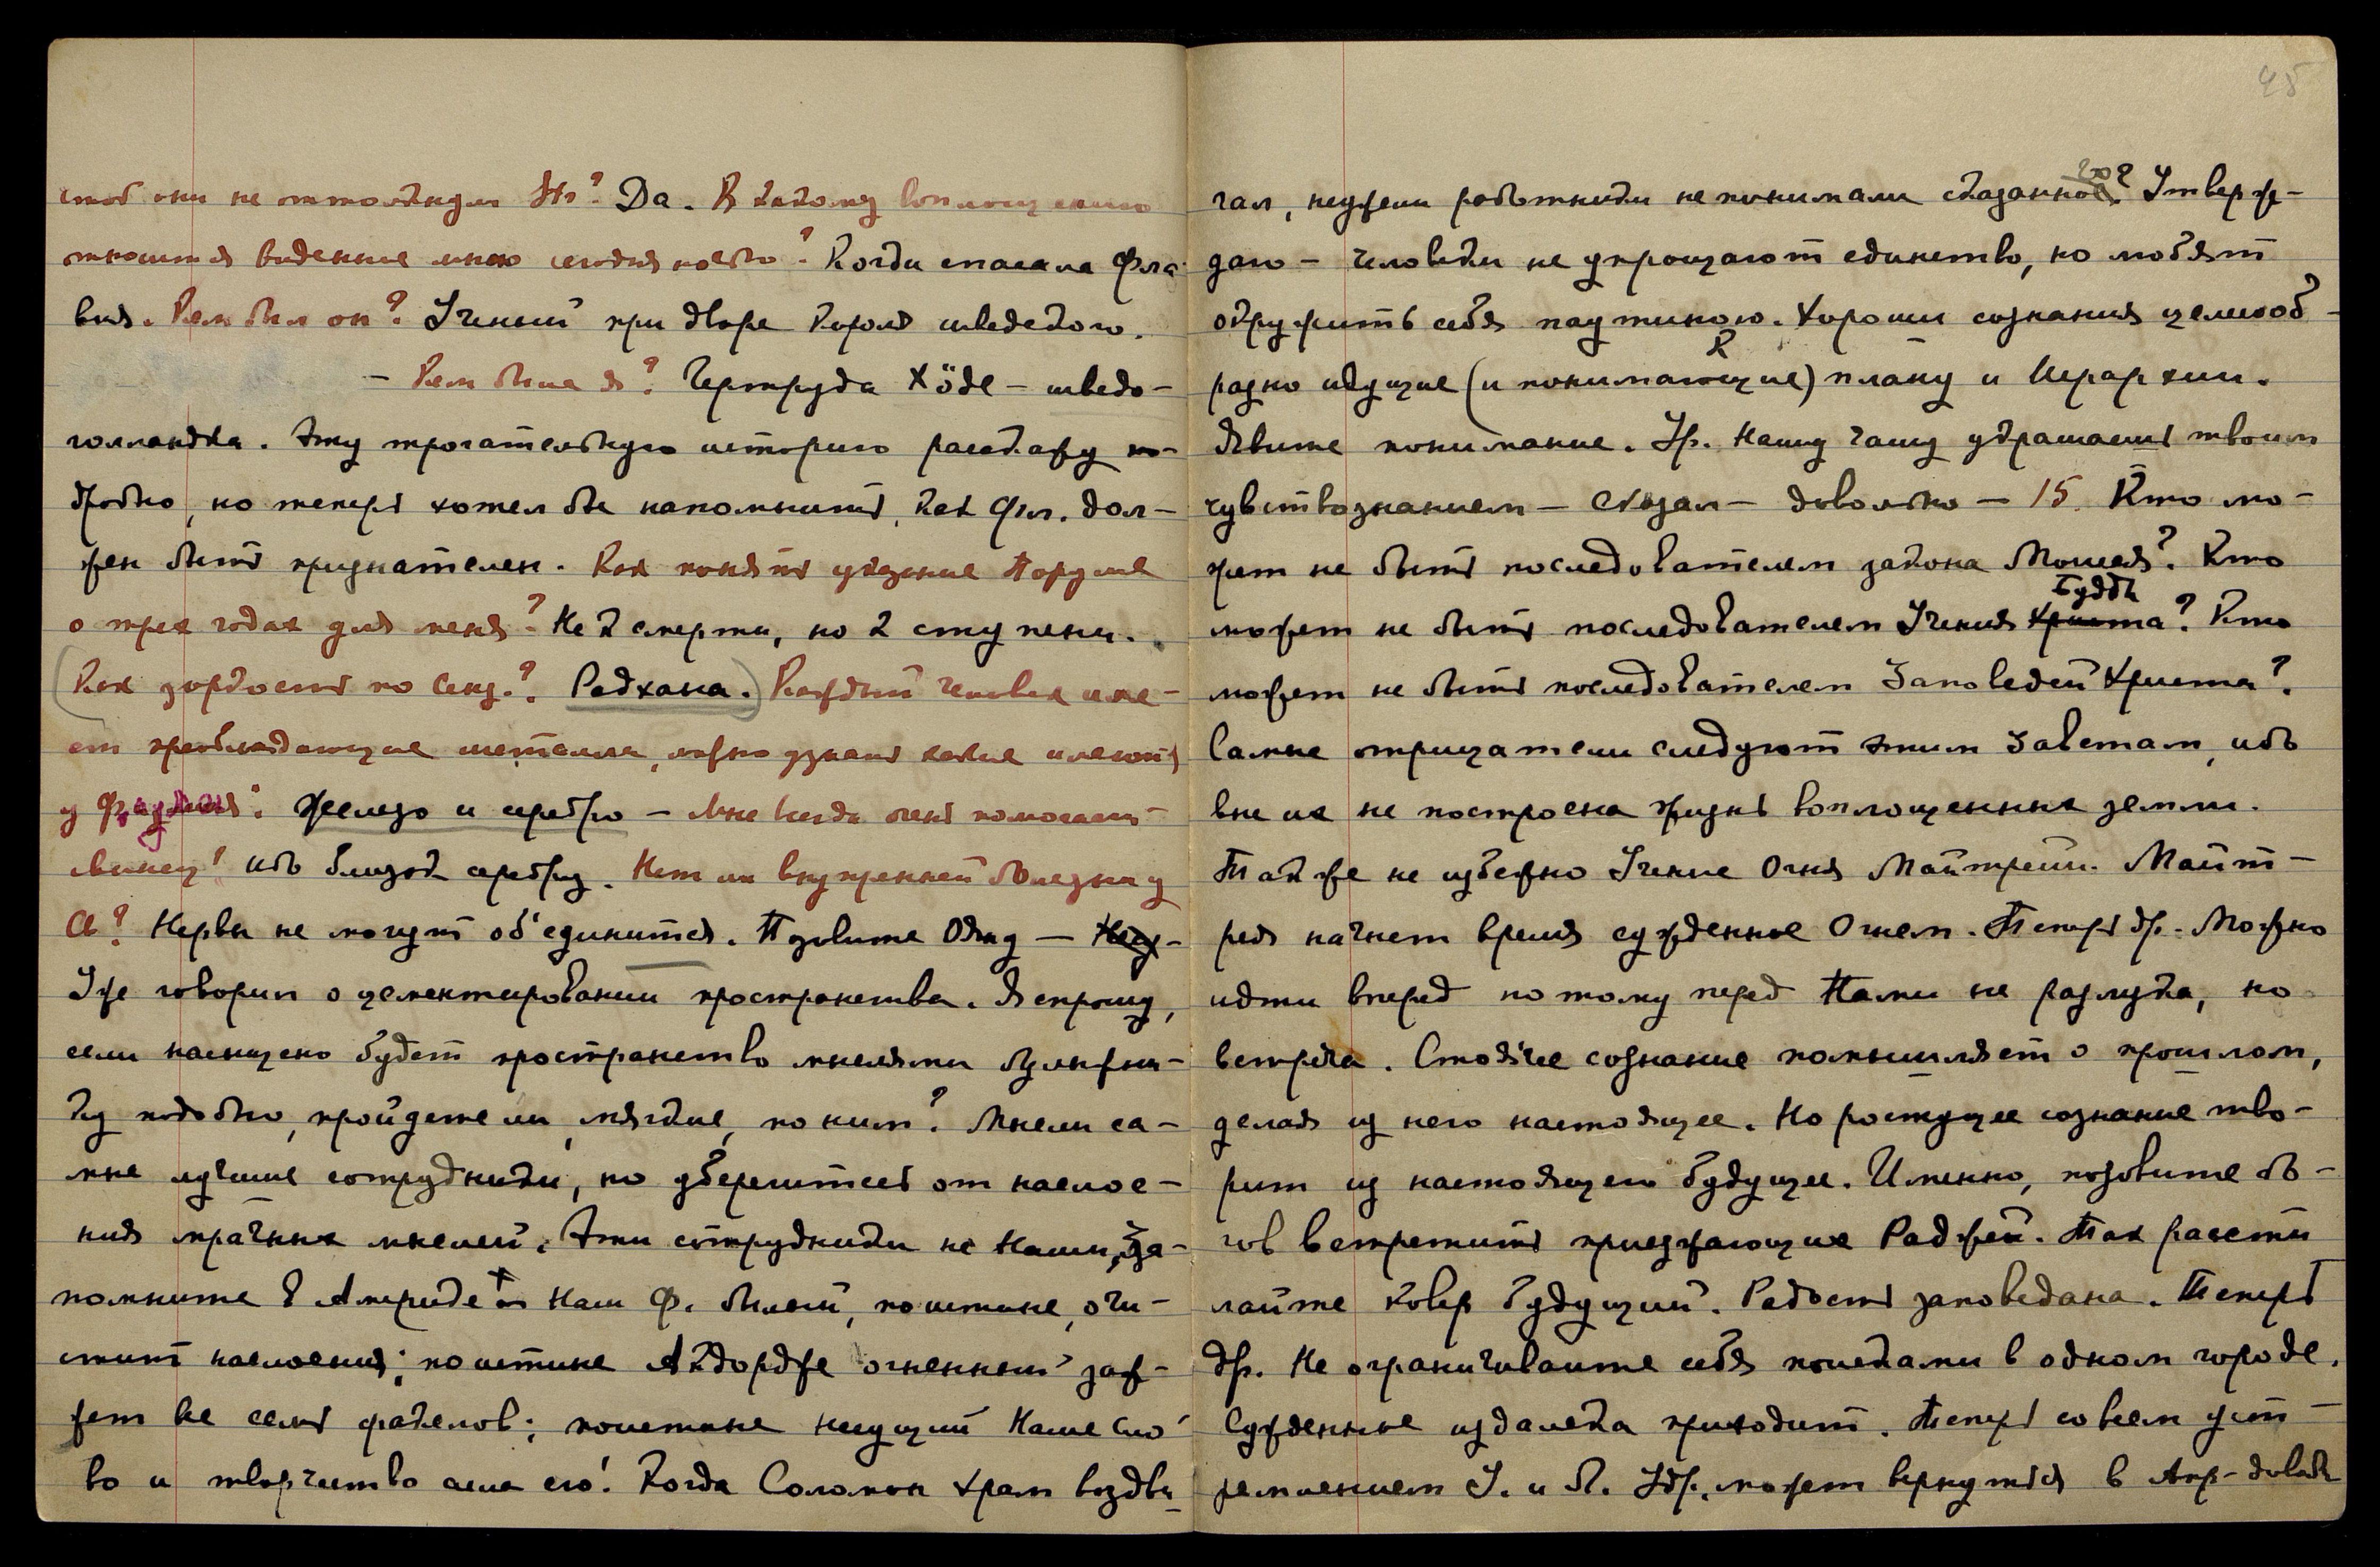 чтоб они не оттолкнули Ян? Да. К какому воплощению
относится виденное мною сегодня ночью? Когда спасала Фла-
вия. Кем был он? Ученый при дворе Короля шведского.
– Кем была я? Гертруда Хöде – шведо-
голландка. Эту трогательную историю расскажу по-
дробно, но теперь хотел бы напомнить, как Фл. дол-
жен быть признателен. Как понять указание Порумы
о трех годах для меня? Не к смерти, но к ступени.
(Как гордость по Сенз.? Радхана.) Каждый человек име-
ет преобладающие металлы, можно узнать какие имеются
у Фуямы? Железо и серебро – Мне всегда очень помогает
свинец! Ибо близок серебру. Нет ли внутренней болезни у
Св? Нервы не могут об'единиться. Позовите Ояну –
Уже говорил о цементировании пространства. Я спрошу,
если насыщено будет пространство мыслями булыжни-
ку подобно, пройдете ли, мягкие, по ним? Мысли са-
мые лучшие сотрудники, но уберегитесь от наслое-
ния мрачных мыслей. Эти сотрудники не Наши, За-
помните В Америке Наш Ф. белый, поистине, очи-
стит наслоения; поистине Акдордже огненный заж-
жет все семь факелов; поистине несущий Наше Сло-
во и творчество сила его! Когда Соломон храм воздви-
45
гал, неужели работники не понимали сказанного? Утверж-
даю – человеки не упрощают единство, но любят
окружить себя паутиною. Хороши сознания целесооб-
разно идущие (и понимающие) к плану и Иерархии.
Явите понимание. Ур. Нашу чашу украшаешь твоим
чувствознанием – Сказал – довольно – 15. Кто мо-
жет не быть последователем закона Моисея? Кто
может не быть последователем Учения Христа Будды? Кто
может не быть последователем Заповедей Христа?
Самые отрицатели следуют этим Заветам, ибо
вне их не построена жизнь воплощенных земли.
Также не избежно Учение Огня Майтреи. Майт-
рея начнет время сужденное Огнем. Теперь др. Можно
идти вперед потому перед Нами не разлука, но
встреча. Стоячее сознание помышляет о прошлом,
делая из него настоящее. Но растущее сознание тво-
рит из настоящего будущее. Именно, позовите бо-
гов встретить приезжающих Раджей. Так рассти-
лайте ковер будущий. Радость заповедана. Теперь
др. Не ограничивайте себя поисками в одном городе.
Сужденные издалека приходит. Теперь со всем уст-
ремлением У. и Л. Удр. может вернуться в Амр – довольно